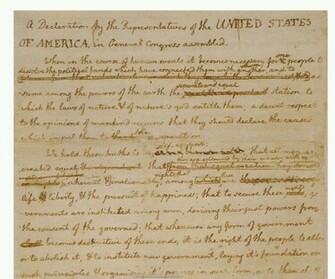 A Declaration by the Representatives of the UNITED STATES
OF AMERICA, in General Congress assembled.
When in the course of human events it becomes necessary for one people to
dissolve the political bands which have connected them with another, and to
assume among the powers of the earth the station to
which the laws of nature & of nature's god entitle them, a decent respect
to the opinions of mankind requires that they should declare the causes
which impel them to the separation.
We hold these truths to be that all men are
created equal
life, & liberty, & the pursuit of happiness; that to secure these rights, go-
vernments are instituted among men, deriving their just powers from
the consent of the governed; that whenever any form of government
becomes destructive of these ends, it is the right of the people to alter
or to abolish it, & to institute new government, laying it's foundation on
such principles & organising it's powers in such form, as to them shall